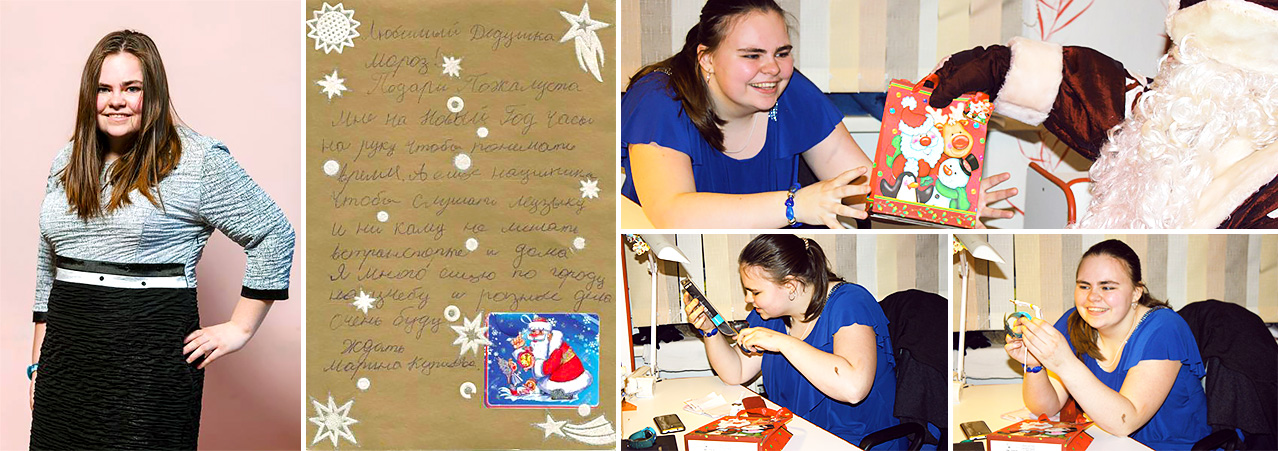 Любимый Дедушка
Мороз!
Подари Пожалуста
Мне на Новый Год Часы
на руку чтобы понимать
время. А еще наушники
Чтобы слушать музыку
и ни кому не мешать
в транспорте и дома
Я много езжу по городу
на учебу и разные дела
Очень буду
Ждать
Марина